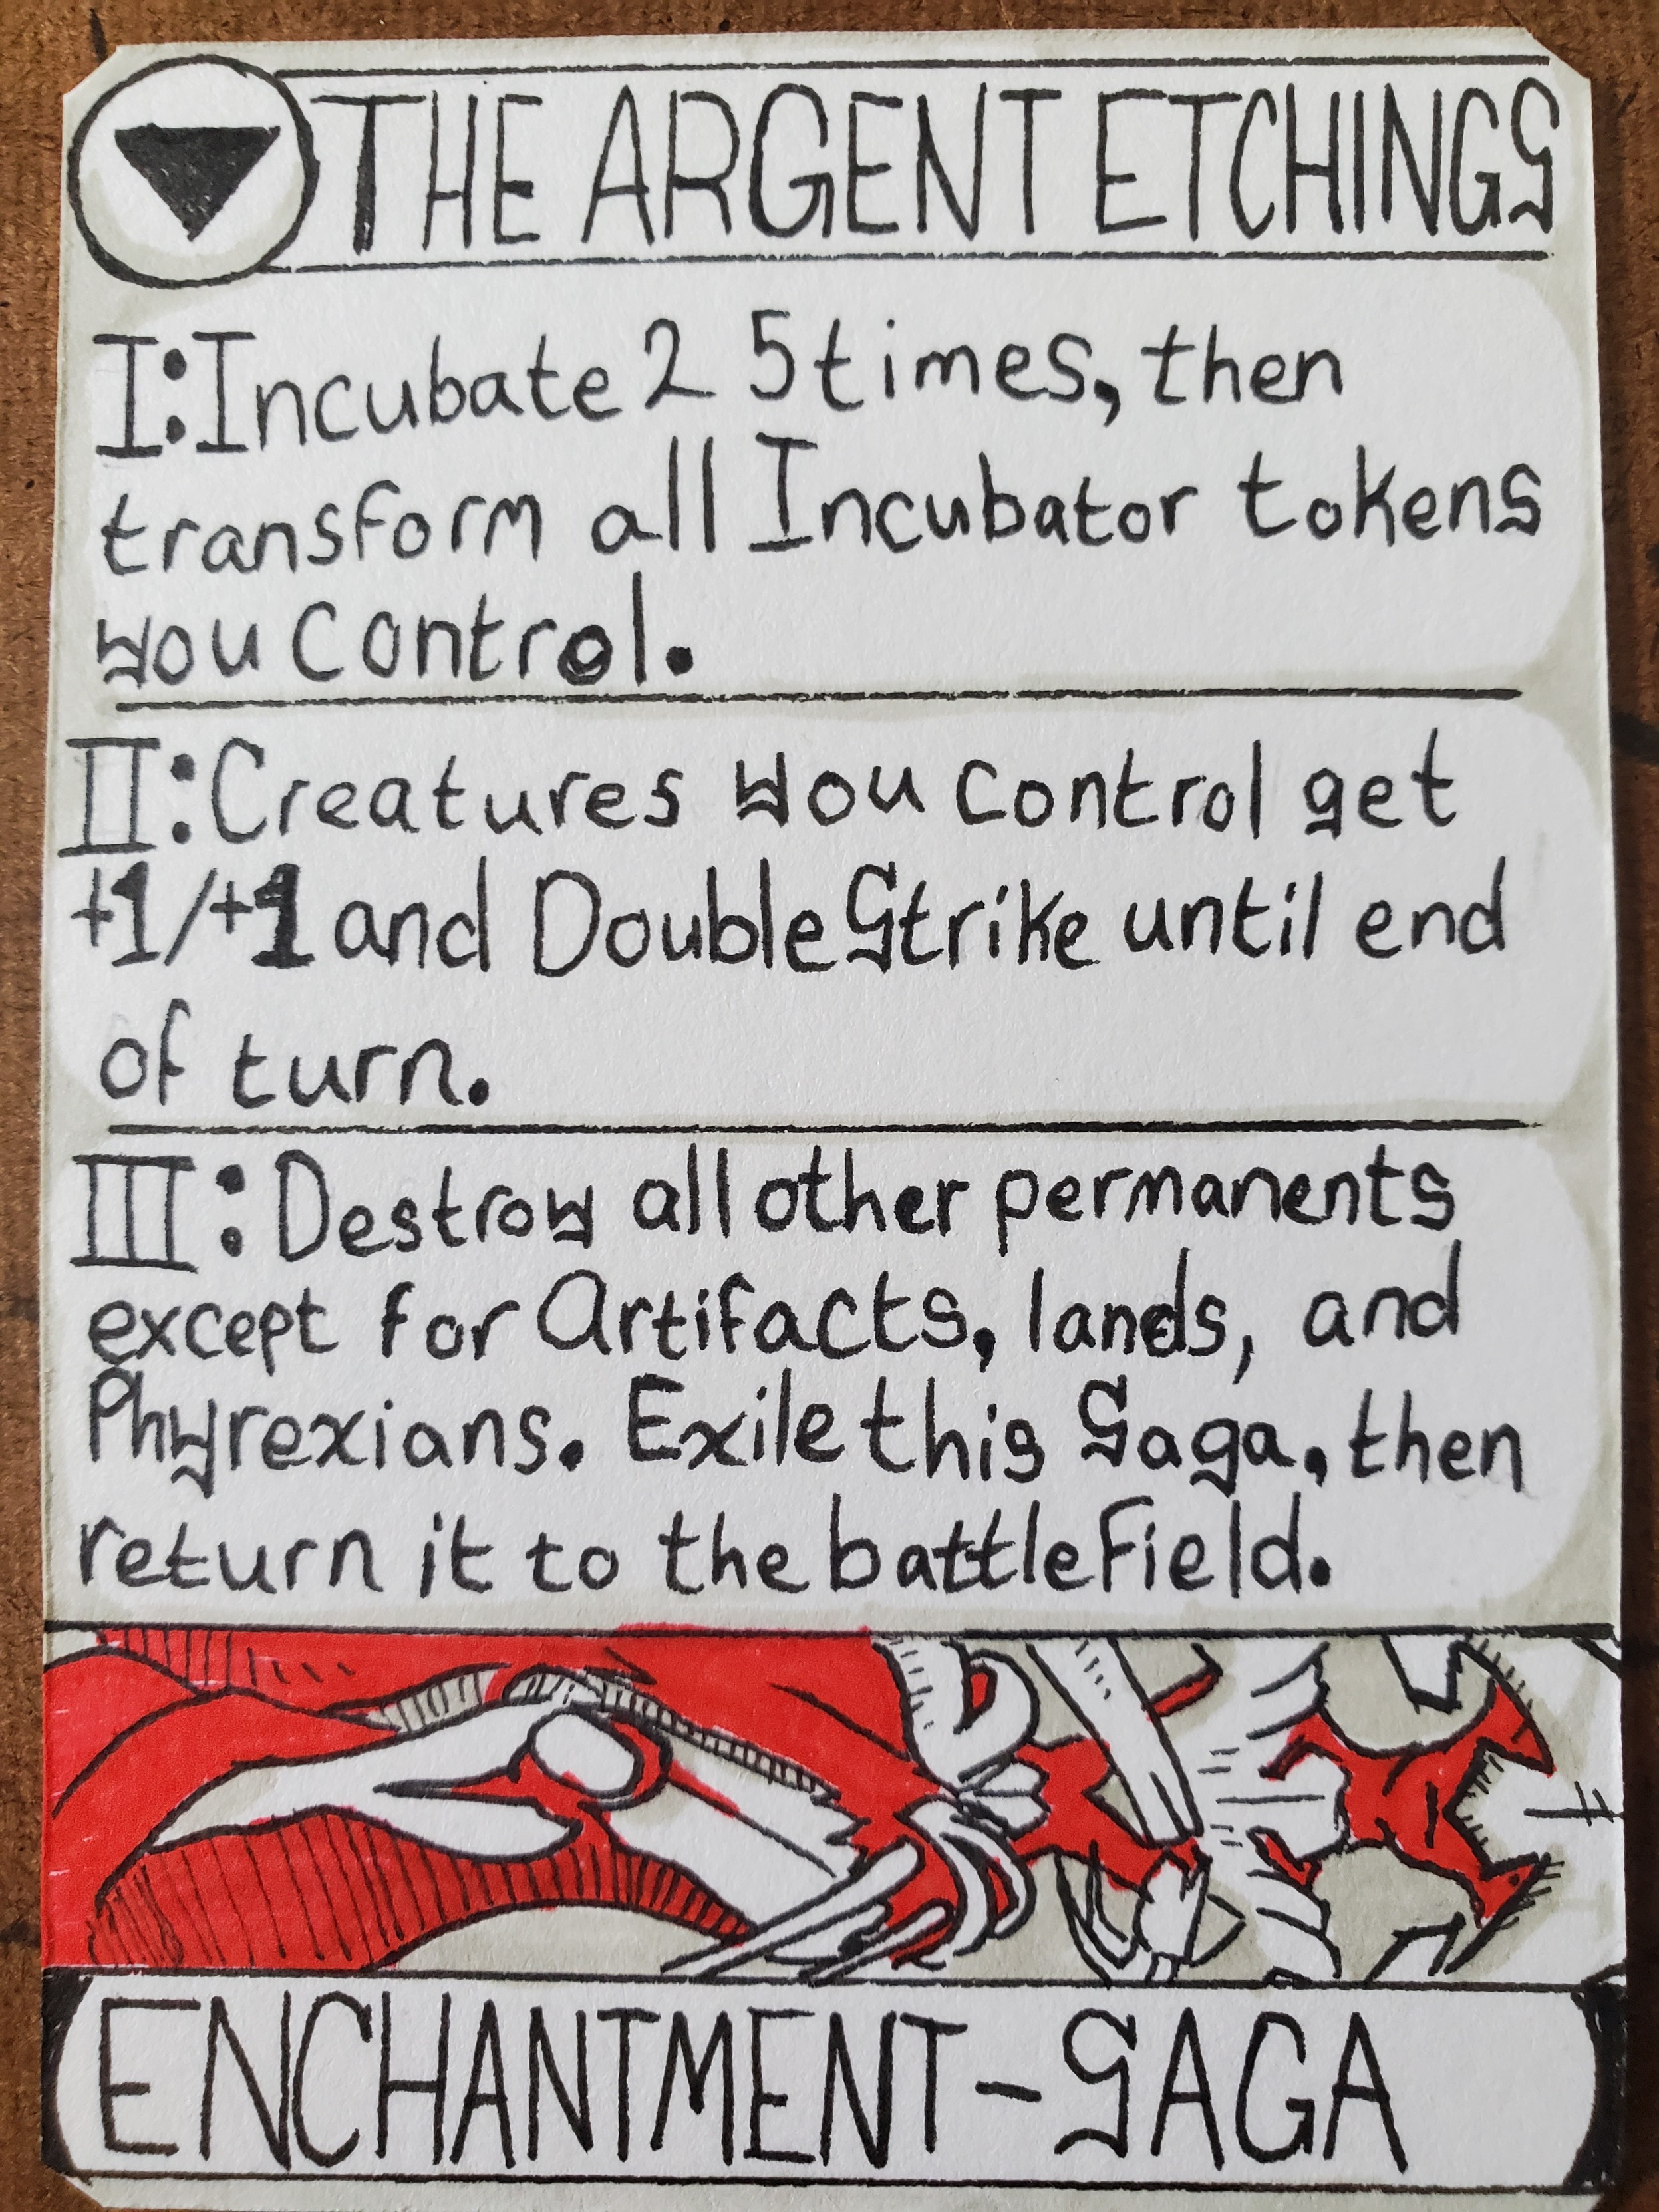 THE ARGENT ETCHINGS
I: Incubate 2 5 times, then
transform all Incubator tokens
you control.
II: Creatures you control get
+1/+1 and Double Strike until end
of turn.
III: Destroy all other permanents
except for Artifacts, lands, and
Phyrexians. Exile this Saga, then
return it to the battlefield.
ENCHANTMENT-SAGA